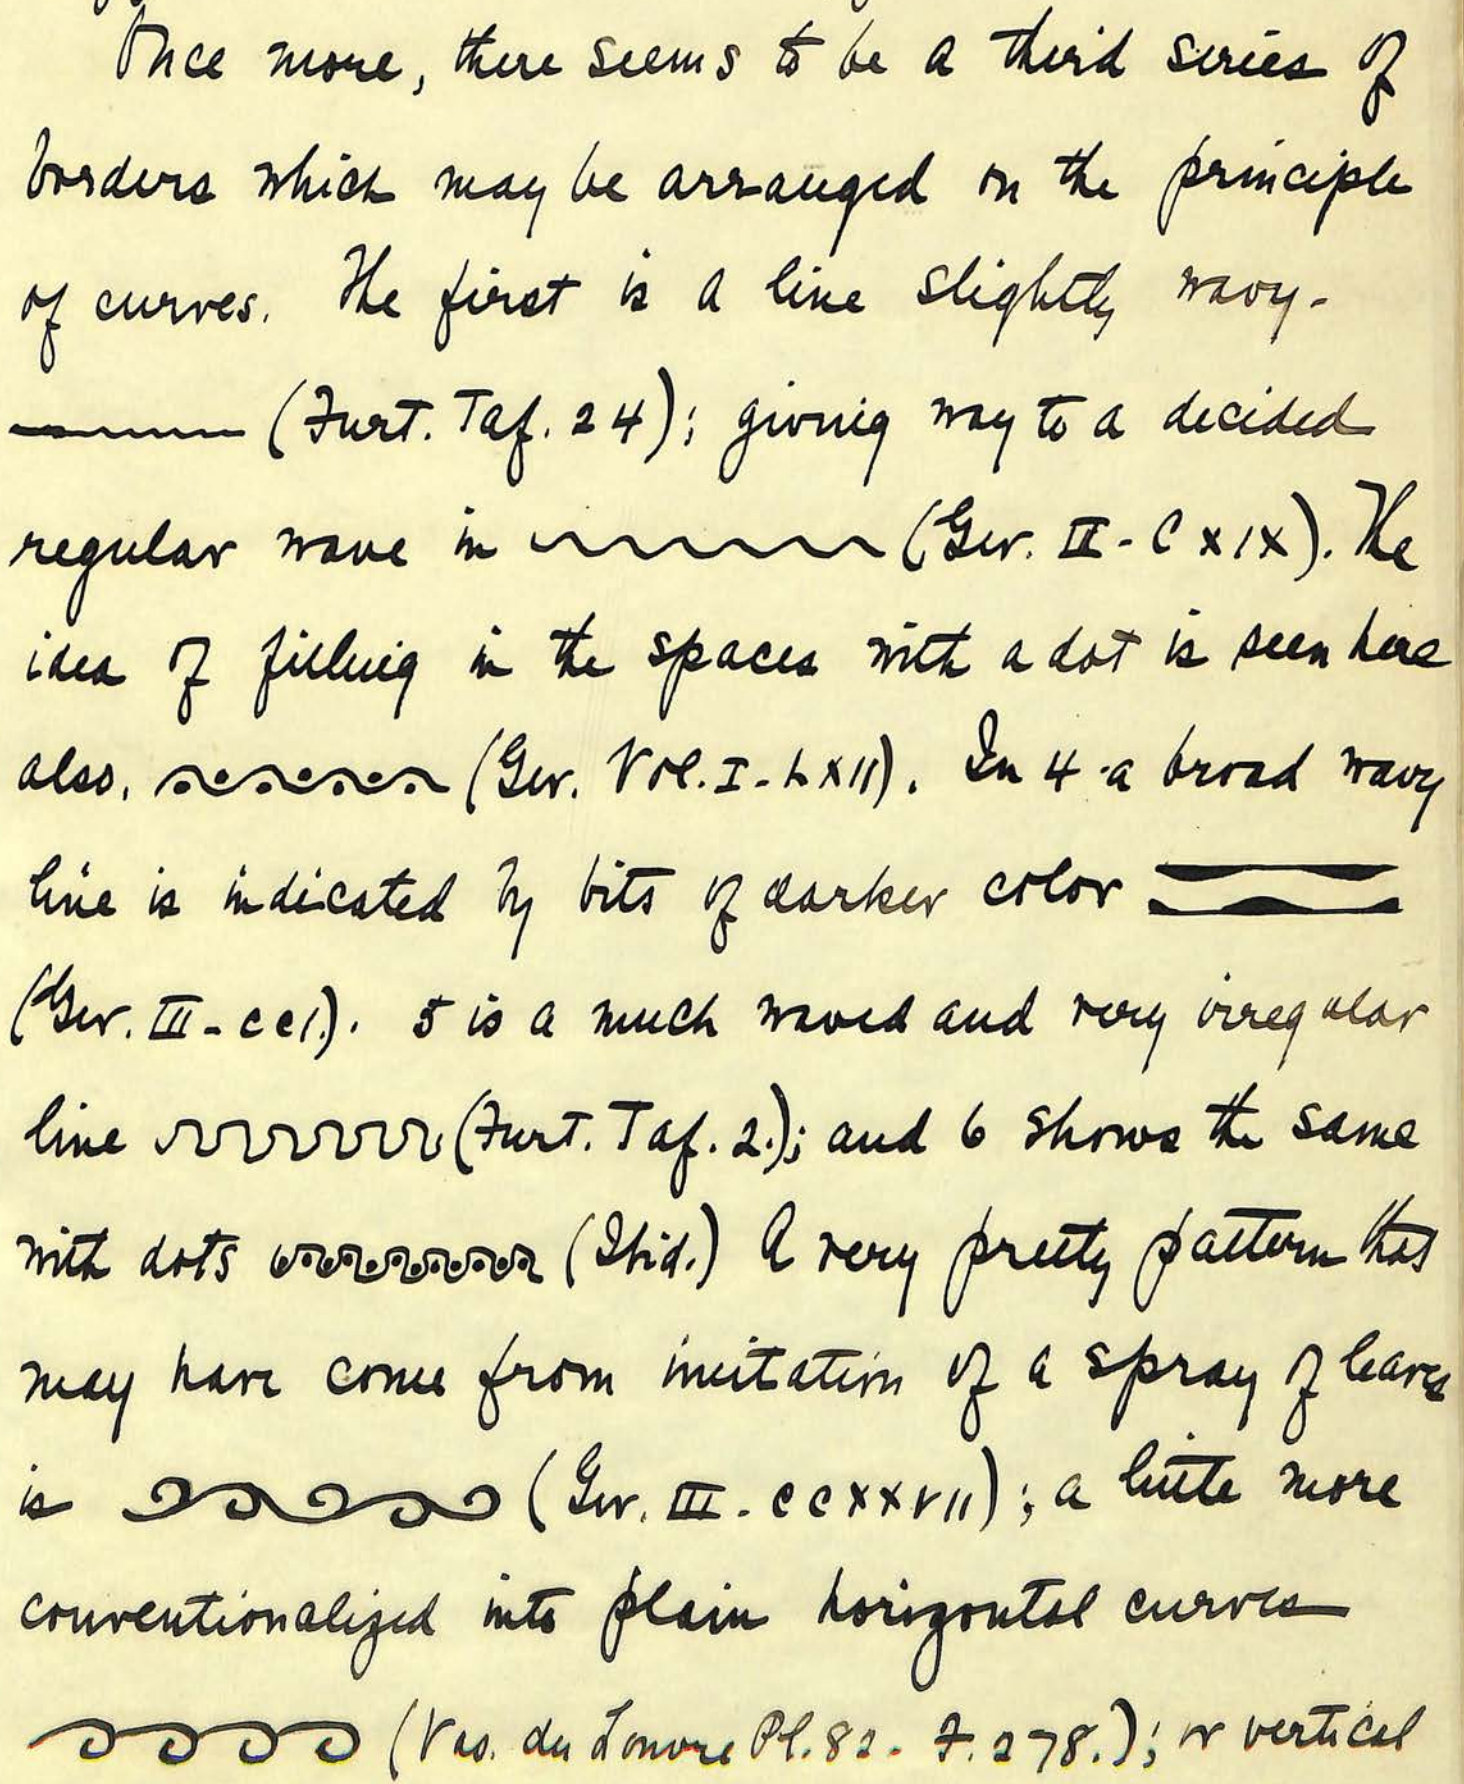 Once more, there seems to be a third series of
borders which may be arranged on the principle
of curves. The first is a line slightly wavy-
(Furt. Taf. 24); giving way to a decided
regular wave in (Ger. II - CXIX). The
idea of filling in the spaces with a dot is seen here
also, (Ger. Vol. I - LXII). In 4 a broad wavy
line is indicated by bits of darker color
(Ger. III - CCI.). 5 is a much waved and very irregular
line (Furt. Taf. 2.); and 6 shows the same
with dots (Ibid.) A very pretty pattern that
may have come from imitation of a spray of leaves
is (Ger. III - CCXXVII); a little more
conventionalized into plain horizontal curves
(Vas. du Louvre Pl. 82 - F. 278.); or vertical